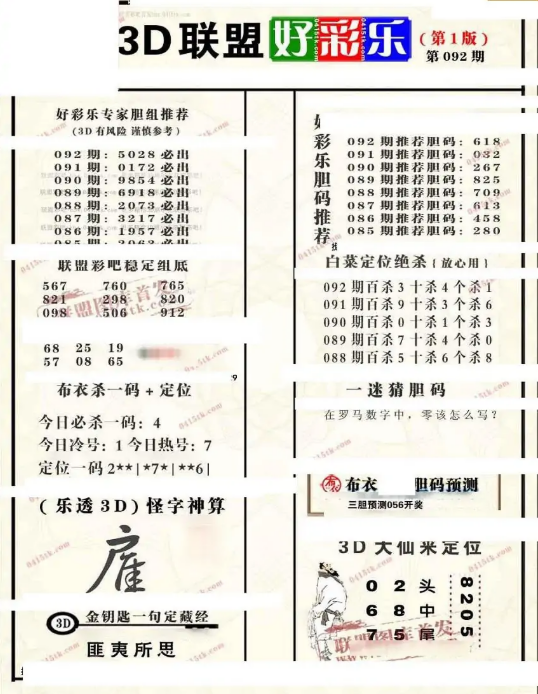 3D联盟好彩乐
(第1版)
第092期
好彩乐专家胆组推荐
(3D有风险 谨慎参考)
092期：5028必出
091期：0172必出
090期：9854必出
089期：6918必出
088期：2073必出
087期：3217必出
086期：1957必出
085期：2063必出
联盟彩吧稳定组底
567 760 765
821 298 820
098 506 912
68 25 19
57 08 65
布衣杀一码+定位
今日必杀一码：4
今日冷号：1 今日热号：7
定位一码 2**|*7*|**6|
(乐透3D)怪字神算
3D
金钥匙一句定藏经
匪夷所思
彩乐胆码推荐
092期推荐胆码：618
091期推荐胆码：032
090期推荐胆码：267
089期推荐胆码：825
088期推荐胆码：709
087期推荐胆码：613
086期推荐胆码：458
085期推荐胆码：280
白菜定位绝杀{放心用}
092期百杀3十杀4个杀1
091期百杀9十杀3个杀6
090期百杀0十杀1个杀3
089期百杀7十杀4个杀0
088期百杀5十杀6个杀8
一迷猜胆码
在罗马数字中，零该怎么写？
布衣 胆码预测
三胆预测056开奖
3D大仙来定位
0 2 头
6 8 中
7 5 尾
8205
联盟图库首发
0415tk.com